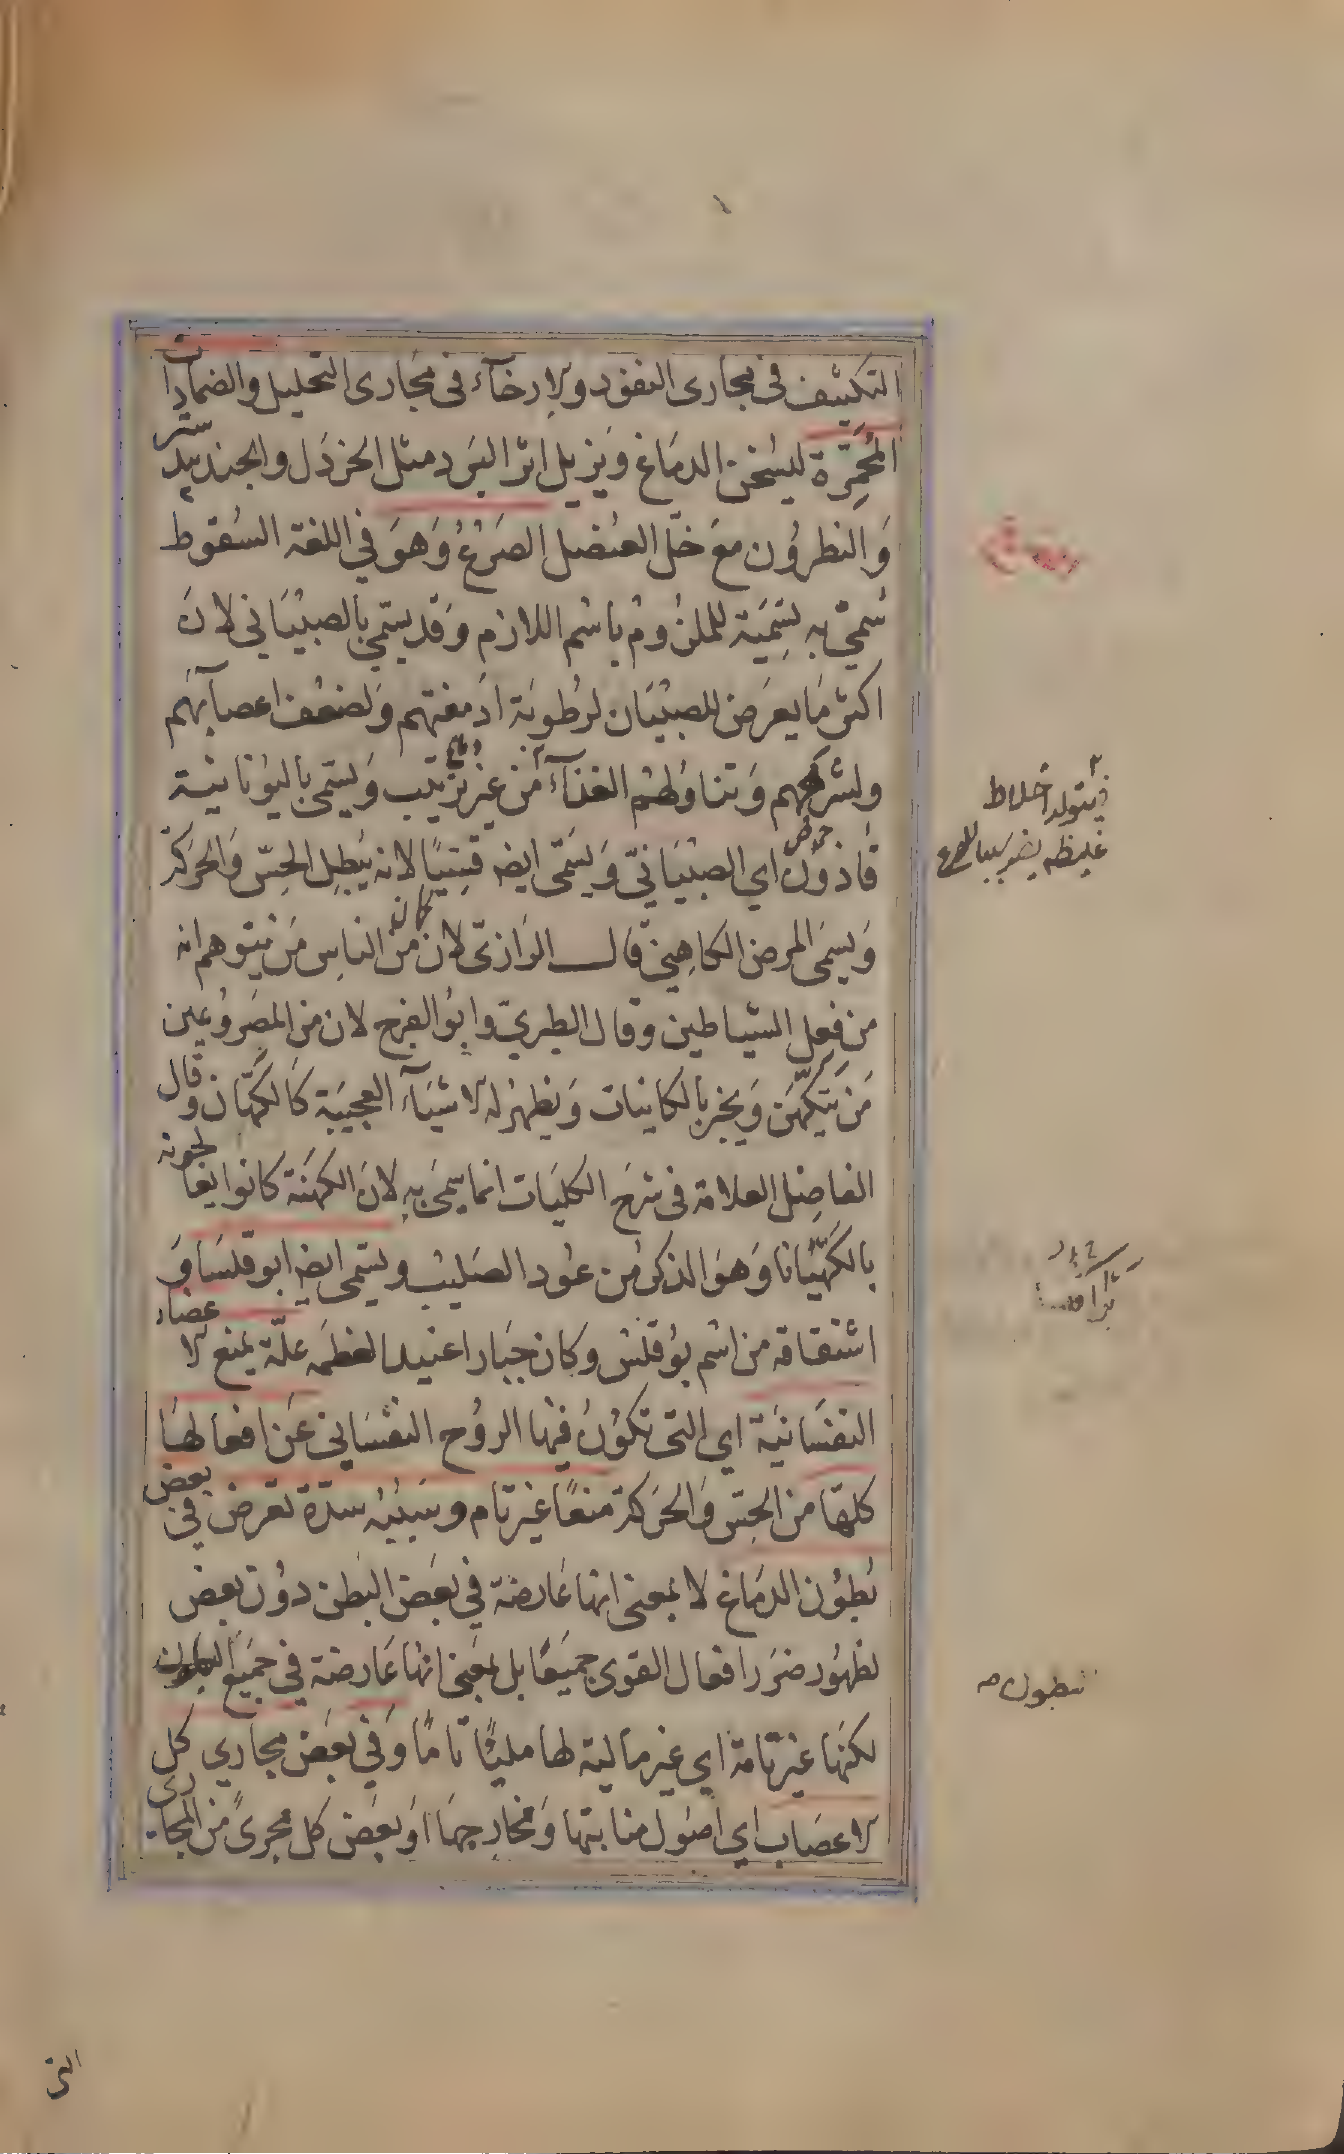 التكثيف فى مجارى النفود والارخآء فى مجارى التحليل والضمادات
المُحمِّرة ليسُخن الدمَاغ وَيزيل اثر البَرد مثل الخردَل والجندبيدستر
وَالنطرُون معَ خلّ العُنصل الصَرْعُ وَهوَ في اللغة السُقوط
سُمىّ به تسَمِيَة للملزُوم باسْم اللازم وَقد يسمّي بالصبْيَاني لانَ
اكثر مَا يعرَض للصبْيَان لرطُوبَة ادمغتهم وَلضعْف اعصابَهم
ولشرههم وَتناوُلهُم الغذآءَ من غير ترتيب وَيسمّى باليُونانيَة
قاذوُن اي الصبْيَانيّ وَيسَمّى ايضه لانه يُبطِل الحِسّ وَالحَركة
وَيسمَى المرض الكاهِنيّ قال الرَازىّ لان منَ الناسِ مَن يتوهم انه
من فعِل الشياطين وقال الطبريّ وابوُ الفرج لان من المصَروُعين
مَن يَتكهّن وَيخبر بالكاينات وَيظهر له الاشيَآء العجيبَة كالكهّان وقال
الفاضِل العلامة فى شرح الكليَات انما سمىَ به لانَ الكهَنَة كانوا يعَالجونه
بالكهّيانا وَهوَ الذكرُ من عُود الصَليب ويسَمّى ايضا ابو قلسَا وَ
اشتقاقه من اسْم بوُقلسْ وكان جَبارا عنيدا لعظمَه علّة يمنع الاعضاء
النفسَانيَة اي التى تكوُنُ فيهَا الروُح النفسَاني عَن افعالهَا
كلهَا من الحِسّ وَالحَركة منعًا غيرتام وسَبَبُهُ سدّة تعرض في بعض
بُطوُن الدمَاغ لا بمعنى انها عَارضة في بعَض البَطن دوُن بعض
لظهُور ضرَر افعال القوى جميَعًا بل بمَعنى انهَا عَارضة فى جَميَع البطون
لكنهَا غير تامّة اي غير مالية لها مليًّا تامًا وَفي بَعض مجاري كل
الاعصَاب اي اصُول منابتها وَمخارجهَا اوَ بعَض كل مجرىً من المجارى
فيتولد اخلاط
غليظه يصَير سببا للصرع
بطون صه